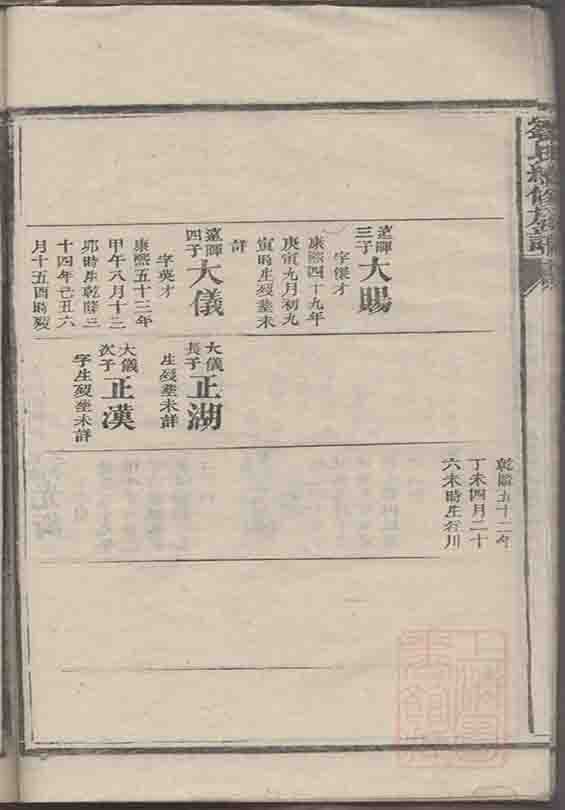 遠暉三子大賜
字傑才
康熙四十九年
庚寅九月初九
寅時生歿塟未
詳
遠暉四子大儀
字英才
康熙五十三年
甲午八月十二
卯時生乾隆三
十四年己丑六
月十五酉時歿
大儀長子正湖
生歿塟未詳
大儀次子正漢
字生歿塟未詳
乾隆五十二年
丁未四月二十
六未時生在川